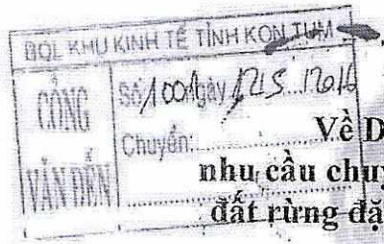 BQL KHU KINH TẾ TỈNH KON TUM
CÔNG VĂN ĐẾN
Số: 1001 ngày
Chuyển:
Về D
nhu cầu chuy
đất rừng đặ